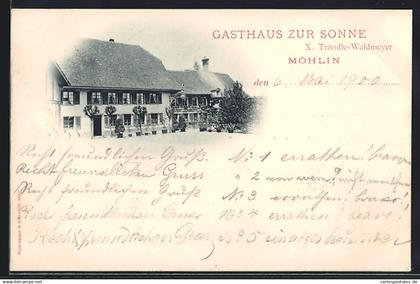 GASTHAUS ZUR SONNE
X. Tröndle-Waldmeyer
MÖHLIN
den 6. Mai 1900
Recht freundlichen Gruß. No 1 errathen! bravo
Recht freundlichen Gruss " 2 von wem?
Recht freundlichen Gruß No 3 errathen, bravo!
Recht freundlichen Gruss No 4 errathen bravo!
Recht freundlichen Gruß No 5